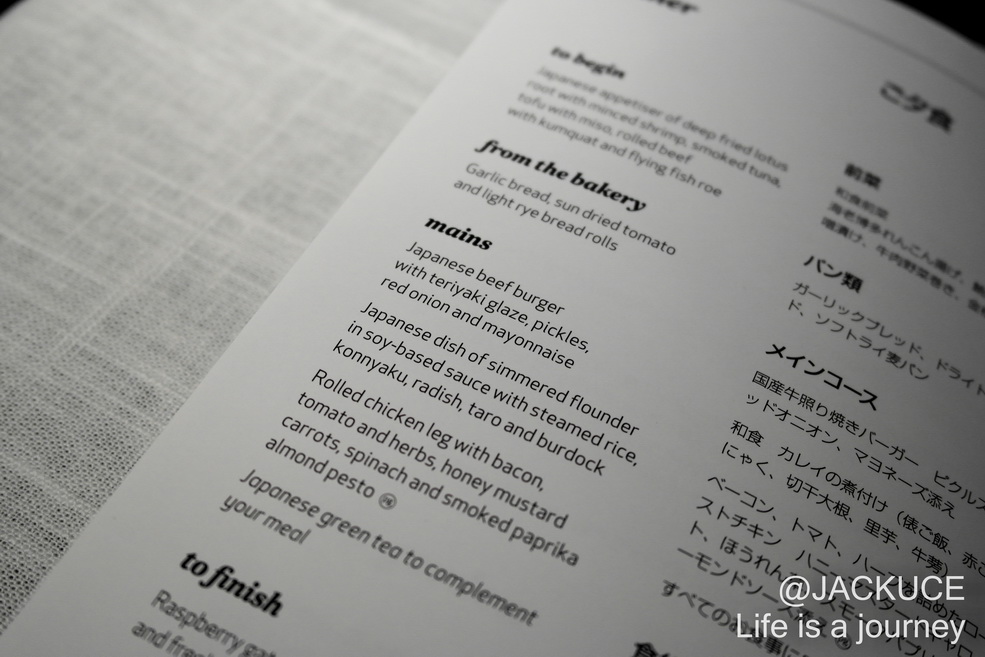 to begin
Japanese appetiser of deep fried lotus
root with minced shrimp, smoked tuna,
tofu with miso, rolled beef
with kumquat and flying fish roe
from the bakery
Garlic bread, sun dried tomato
and light rye bread rolls
mains
Japanese beef burger
with teriyaki glaze, pickles,
red onion and mayonnaise
Japanese dish of simmered flounder
in soy-based sauce with steamed rice,
konnyaku, radish, taro and burdock
Rolled chicken leg with bacon,
tomato and herbs, honey mustard
carrots, spinach and smoked paprika
almond pesto
Japanese green tea to complement
your meal
to finish
Raspberry
and
ご夕食
前菜
和食前菜
海老博多れんこん揚げ、
噌漬け、牛肉野菜巻き、
パン類
ガーリックブレッド、ドライト
ド、ソフトライ麦パン
メインコース
国産牛照り焼きバーガー ピクルス
ッドオニオン、マヨネーズ添え
和食 カレイの煮付け（俵ご飯、赤こ
にゃく、切干大根、里芋、牛蒡）
ベーコン、トマト、ハーブ
ストチキン
ト、ほうれん
ーモンドソース添え
すべてのお食事に
@JACKUCE
Life is a journey